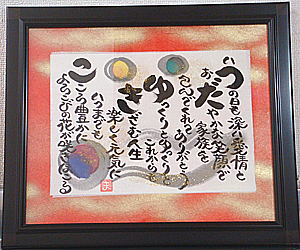 いつの日も深い愛情と
おだやかな笑顔で
家族を
ささえてくれてありがとう
ゆっくりとゆっくり
これからも
きざむ人生
楽しく元気に
いつまでも
こころ豊かに
よろこびの花が咲きほこる